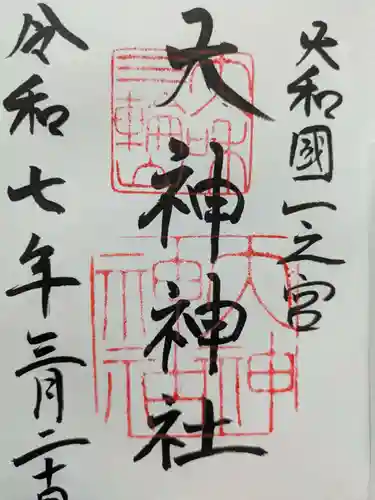 大和國一之宮
大神神社
令和七年三月二十日
三輪山
大神神社